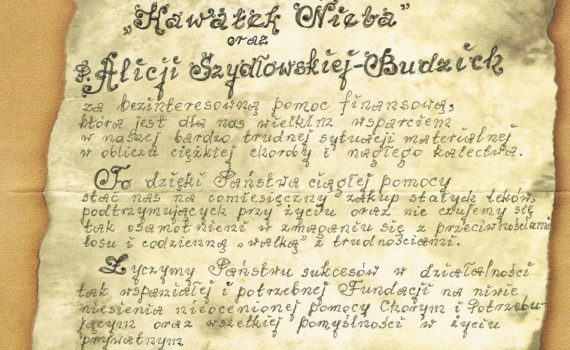 „Kawałek Nieba"
oraz
P. Alicji Szydłowskiej-Budzich
za bezinteresowną pomoc finansową,
która jest dla nas wielkim wsparciem
w naszej bardzo trudnej sytuacji materialnej
w obliczu ciężkiej choroby i nagłego kalectwa.
To dzięki Państwa ciągłej pomocy
stać nas na comiesięczny zakup stałych leków,
podtrzymujących przy życiu oraz nie czujemy się
tak osamotnieni w zmaganiu się z przeciwnościami
losu i codzienną „walką" z trudnościami.
Życzymy Państwu sukcesów w działalności
tak wspaniałej i potrzebnej Fundacji na niwie
niesienia nieocenionej pomocy Chorym i Potrzebu-
jącym oraz wszelkiej pomyślności w życiu
prywatnym